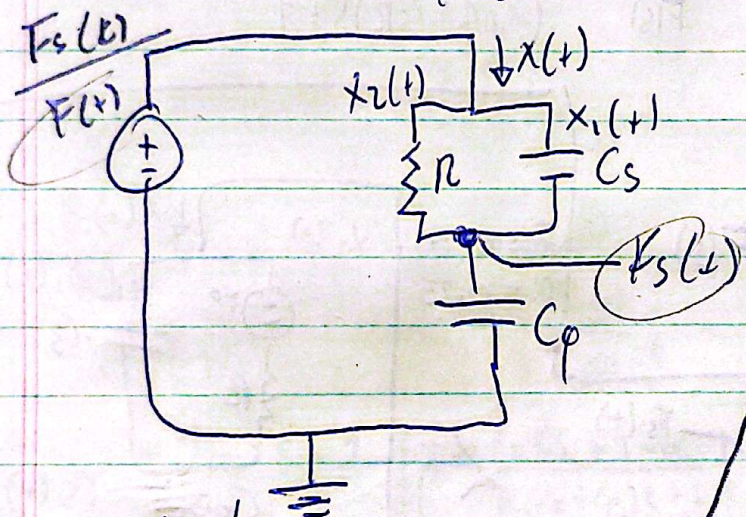 Fs(t)
F(t)
x(t)
x2(t)
x1(t)
+
-
R
Cs
Fs(t)
Cp